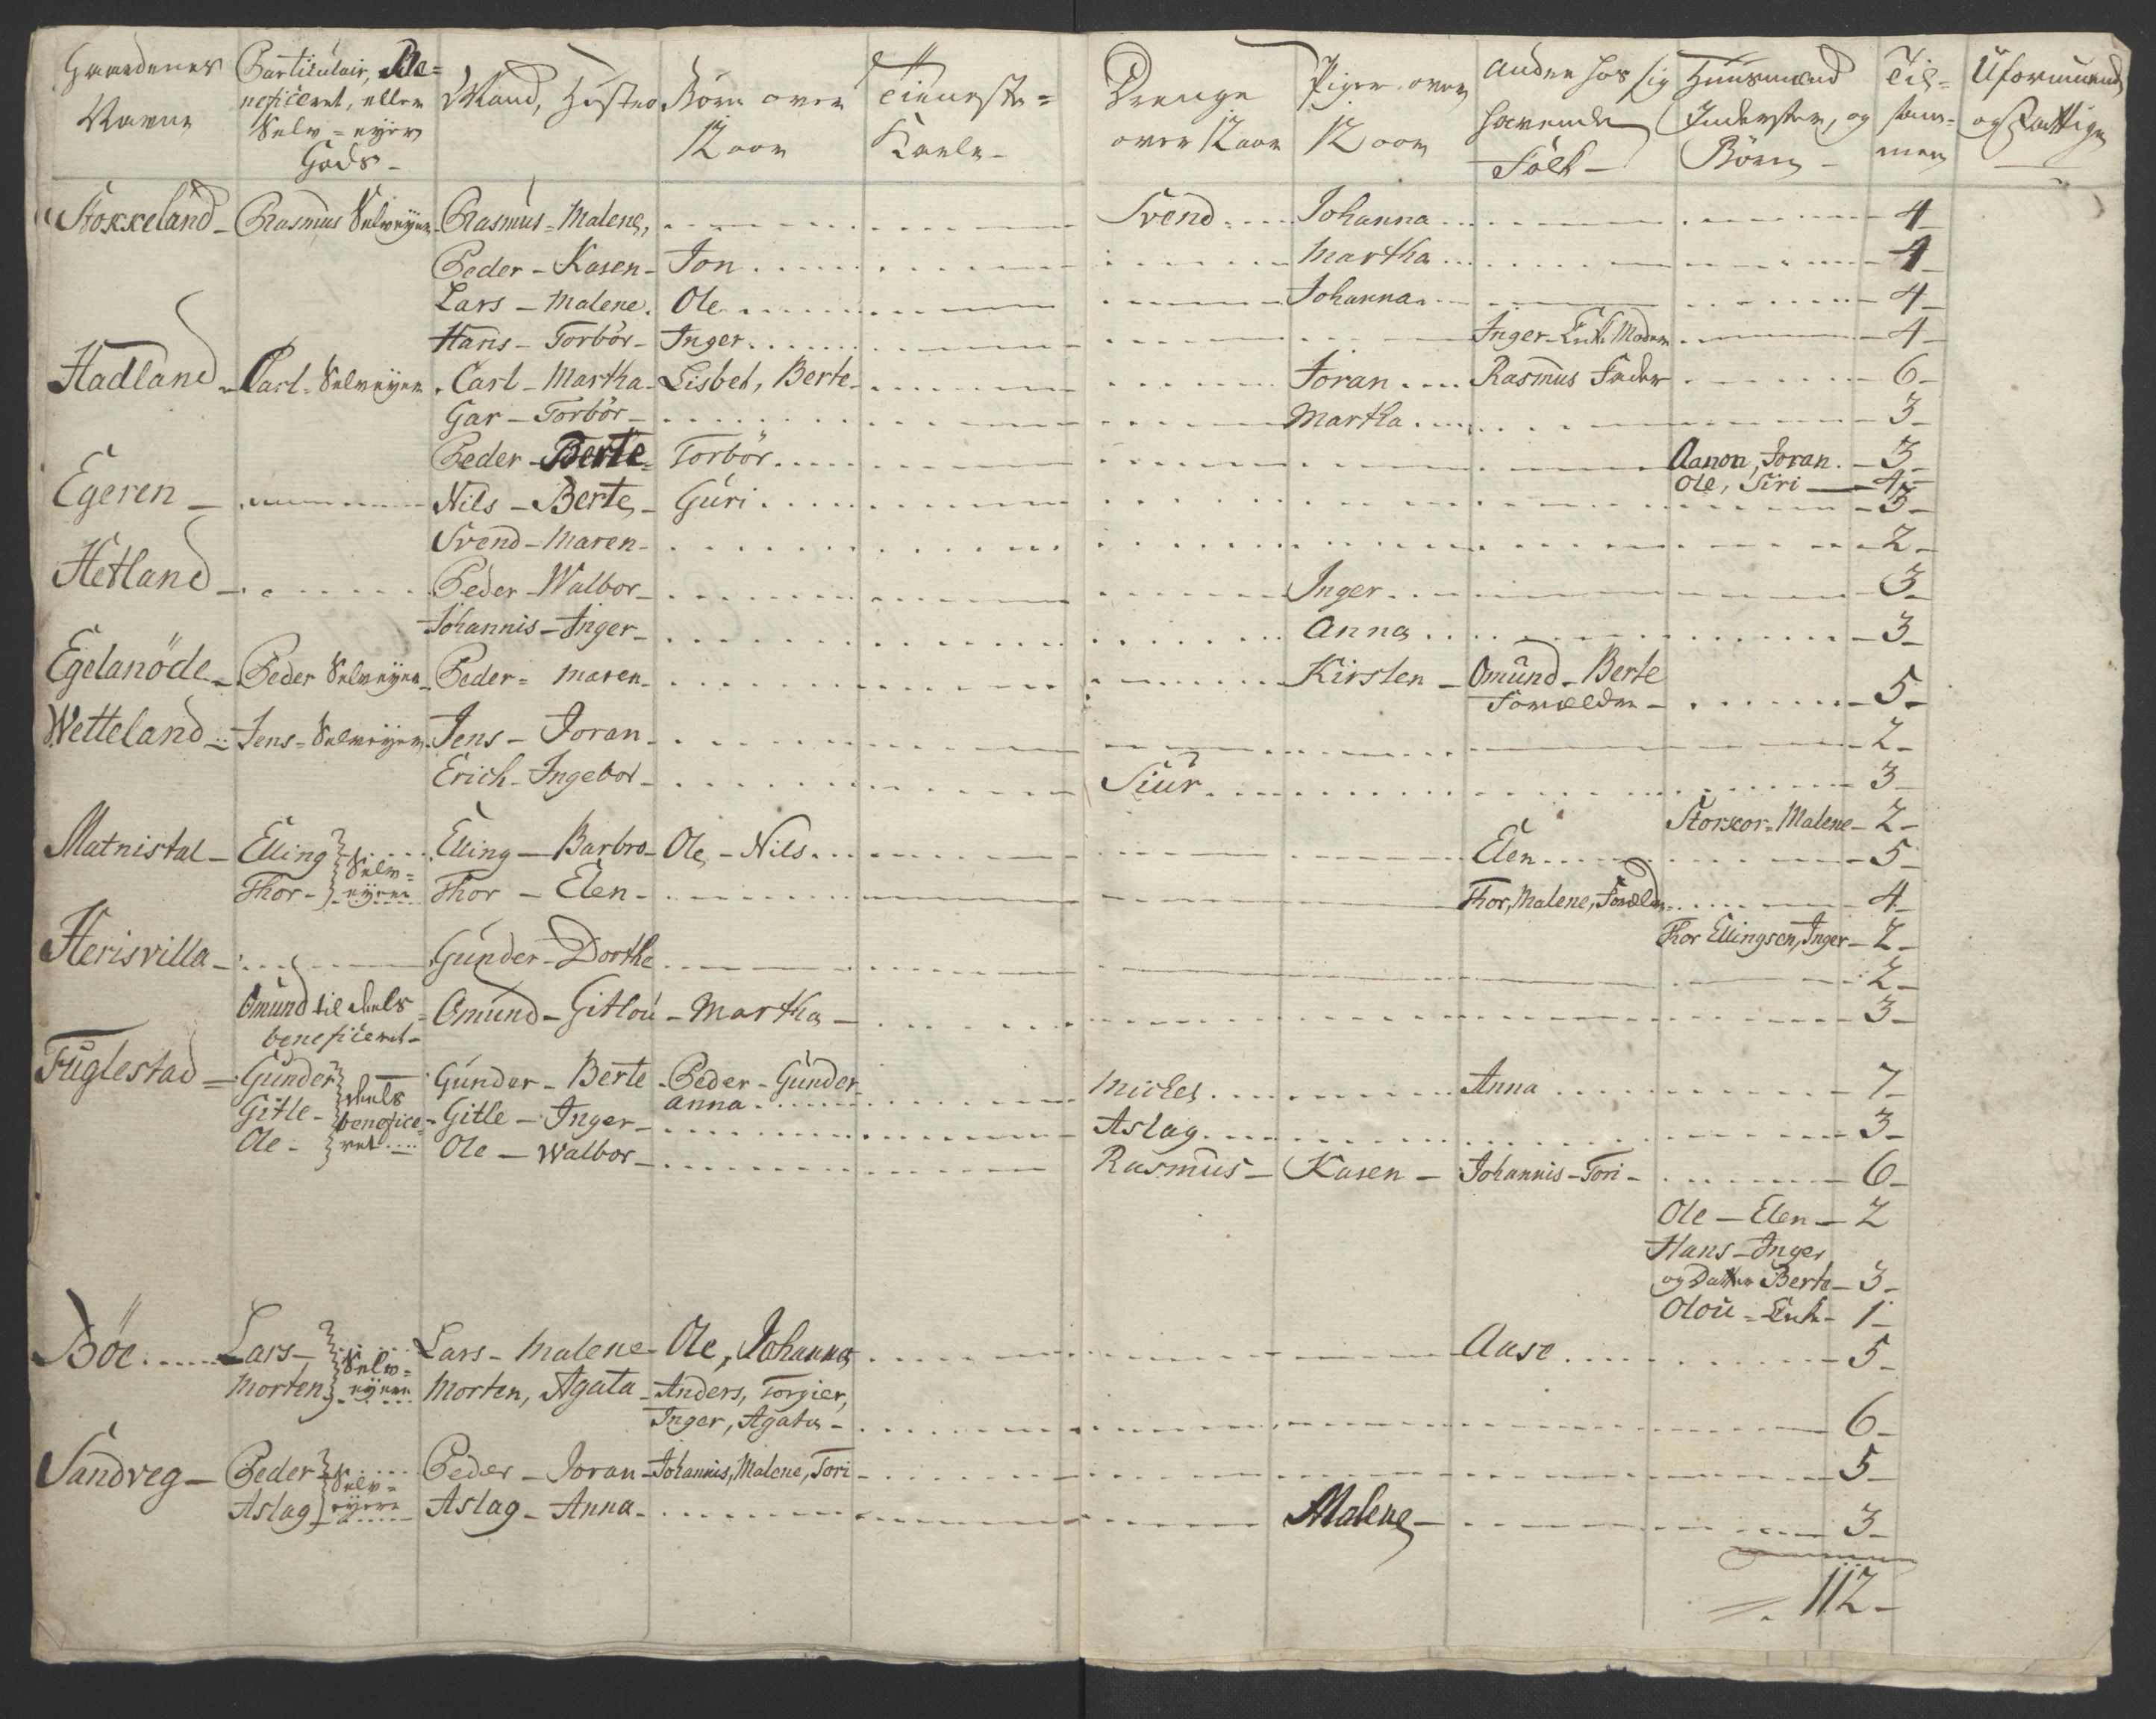 Gaardenes Navne | Particulair, Beneficeret, eller Selv=eyer Gods - | Mand, Hustro | Börn over 12 aar | Tieneste=Karle - | Drenge over 12 aar | Piger over 12 aar | Anden hos sig havende Folk - | Huusmænd Inderster, og Börn - | Tilsammen | Uformuende og Fattige
Stokkeland - Rasmus Selveyer Rasmus = Malene, Svend Johanna 4
Peder - Karen - Jon Martha 4
Lars - Malene. Ole Johanna 4
Hans - Torbör - Inger Inger - Enk. Moder 4
Hadland - Carl - Selveyer Carl - Martha - Lisbet, Berte Joran Rasmus Fader 6
Gar - Torbör - Martha 3
Peder - Berte - Torbör 3
Aanon, Joran.
Ole, Siri 4
Egeren - Nils - Berte - Guri 3
Svend - Maren - 2
Hetland - Peder - Walbor - Inger 3
Johannis - Inger - Anna 3
Egelanöde - Peder Selveyer Peder = Maren - Kirsten - Omund - Berte
Forældre - 5
Wetteland - Jens = Selveyer Jens - Joran 2
Erich - Ingebor - Siur 3
Storkor = Malene - 2
Matnistal - Elling Selv= Elling - Barbro - Ole - Nils Elen 5
Thor - eyere Thor - Elen - Thor, Malene, Forældre 4
Thor Ellingsen, Inger - 2
Herisvilla - Gunder - Dorthe 2
Omund til deels Omund - Gitlou - Martha - 3
beneficeret -
Fuglestad = Gunder deels Gunder - Berte - Peder - Gunder Michel Anna 7
Anna
Gitle - benefice= Gitle - Inger - Aslag 3
Ole - ret Ole - Walbor - Rasmus - Karen - Johannis - Tori - 6
Ole - Elen - 2
Hans - Inger
og Datter Berte - 3
Olou = Enke - 1
Böe Lars - Selv= Lars - Malene - Ole, Johanna Aase 5
Morten eyere Morten, Agata - Anders, Torgier,
Inger, Agata - 6
Sandveg - Peder Selv= Peder - Joran - Johannis, Malene, Tori - 5
Aslag eyere Aslag - Anna - Malene - 3
112 -